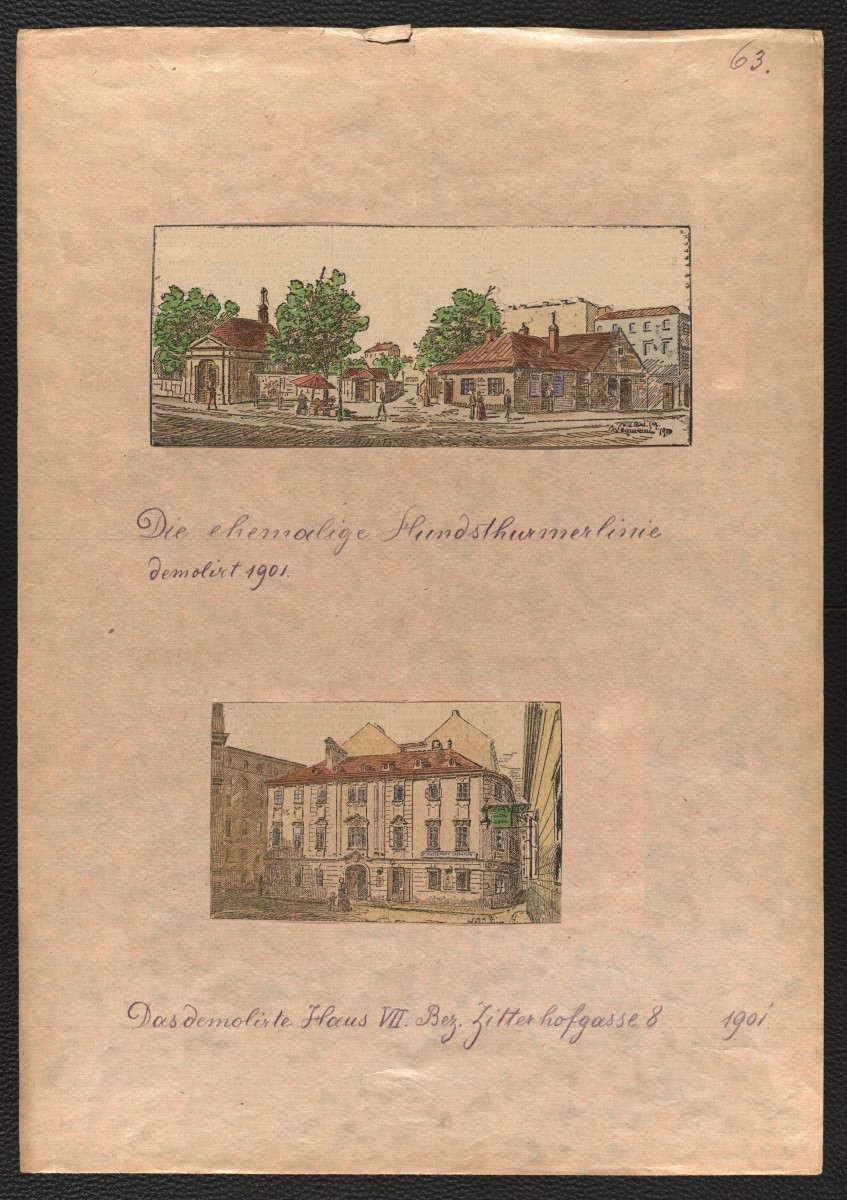 63.
Die ehemalige Hundsthurmerlinie
demolirt 1901.
Das demolirte Haus VII. Bez. Zitterhofgasse 8 1901